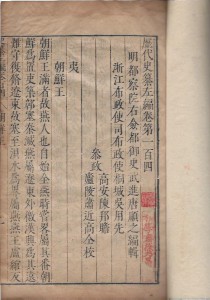 歷代史纂左編卷第一百四
明都察院右僉都御史武進唐順之編輯
浙江布政使司布政使桐城吳用先
叅政高安陳邦瞻
廬陵蕭近高仝校
夷
朝鮮
朝鮮王
朝鮮王滿者故燕人也自始全燕時嘗畧屬真番朝
鮮爲置吏築鄣塞秦滅燕屬遼東外徼漢興爲其遠
難守復修遼東故塞至浿水爲界屬燕燕王盧綰反